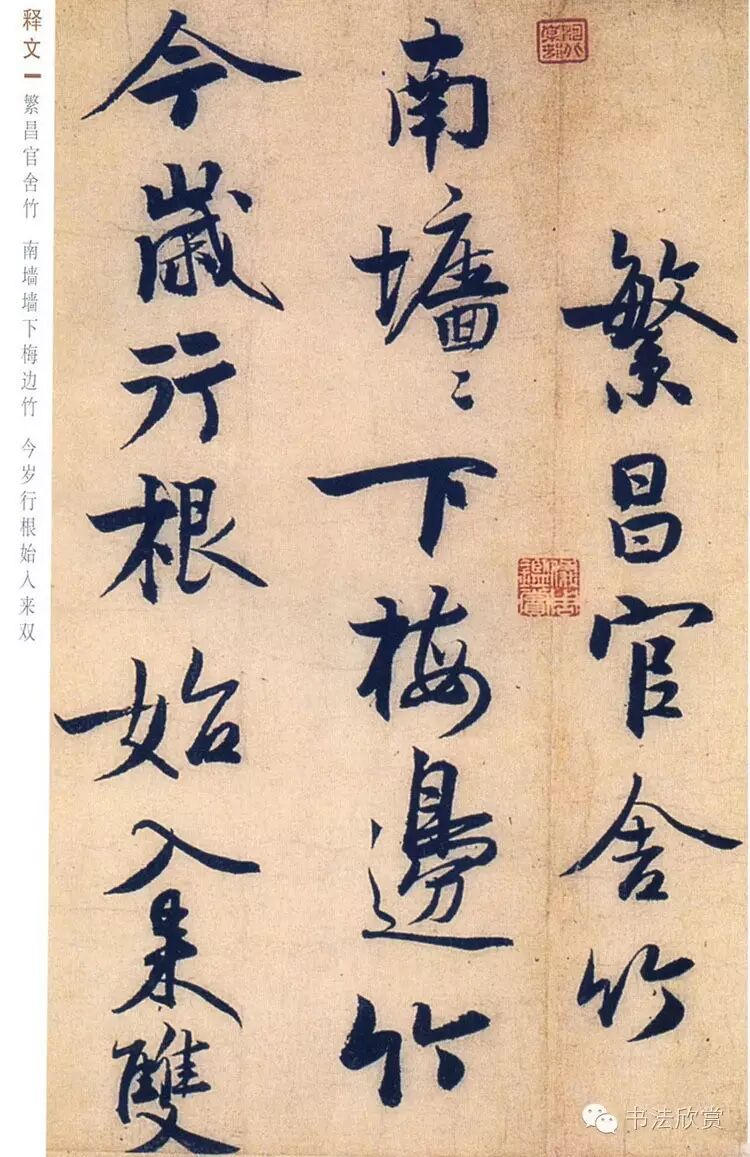 繁昌官舍竹
南墻〻下梅邊竹
今歲行根始入來雙
释文 繁昌官舍竹 南墙墙下梅边竹 今岁行根始入来双
书法欣赏